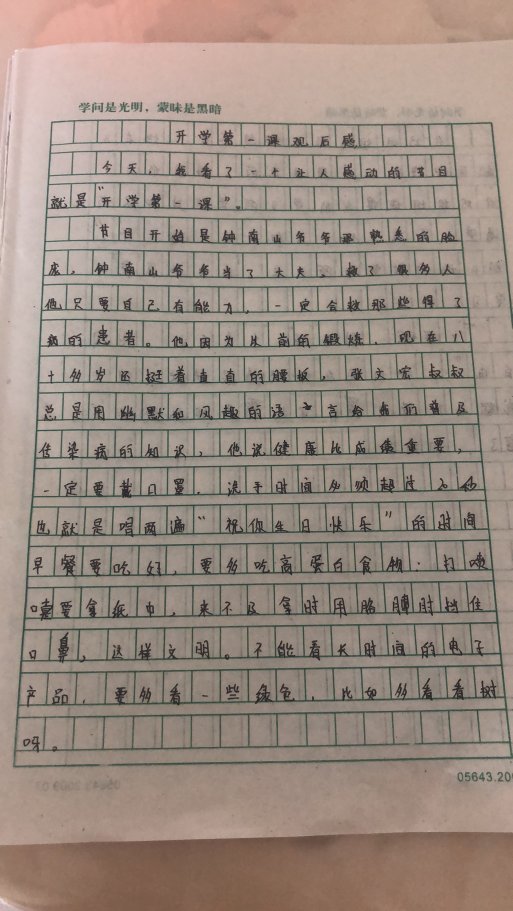 学问是光明，蒙昧是黑暗
开学第一课观后感
今天，我看了一个让人感动的节目
就是“开学第一课”。
节目开始是钟南山爷爷那熟悉的脸
庞，钟南山爷爷当了大夫，救了很多人
他只要自己有能力，一定会救那些得了
病的患者。他因为从前的锻炼，现在八
十多岁还挺着直直的腰板，张文宏叔叔
总是用幽默和风趣的语言给我们普及
传染病的知识，他说健康比成绩重要，
一定要戴口罩，洗手时间必须超过20秒
也就是唱两遍“祝你生日快乐”的时间
早餐要吃好，要多吃高蛋白食物；打喷
嚏要拿纸巾，来不及拿时用胳膊肘挡住
口鼻，这样文明。不能看长时间的电子
产品，要多看一些绿色，比如多看看树
呀。
05643.200